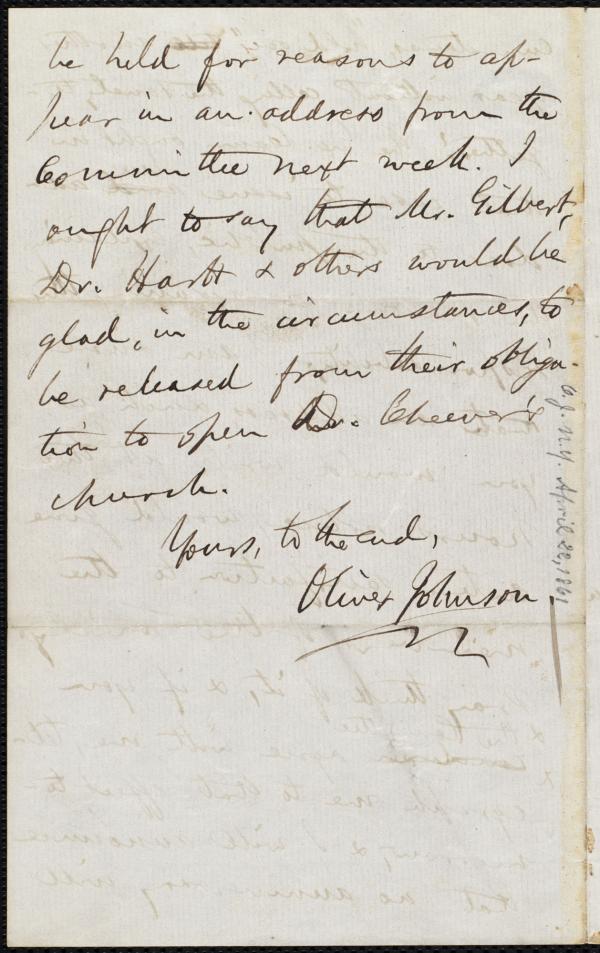 be held for reasons to ap-
pear in an address from the
Committee next week. I
ought to say that Mr. Gilbert,
Dr. Hartt & others would be
glad, in the circumstances, to
be released from their obliga-
tion to open Dr. Cheever's
church.
Yours, to the end,
Oliver Johnson.
N.Y. April 22, 1861